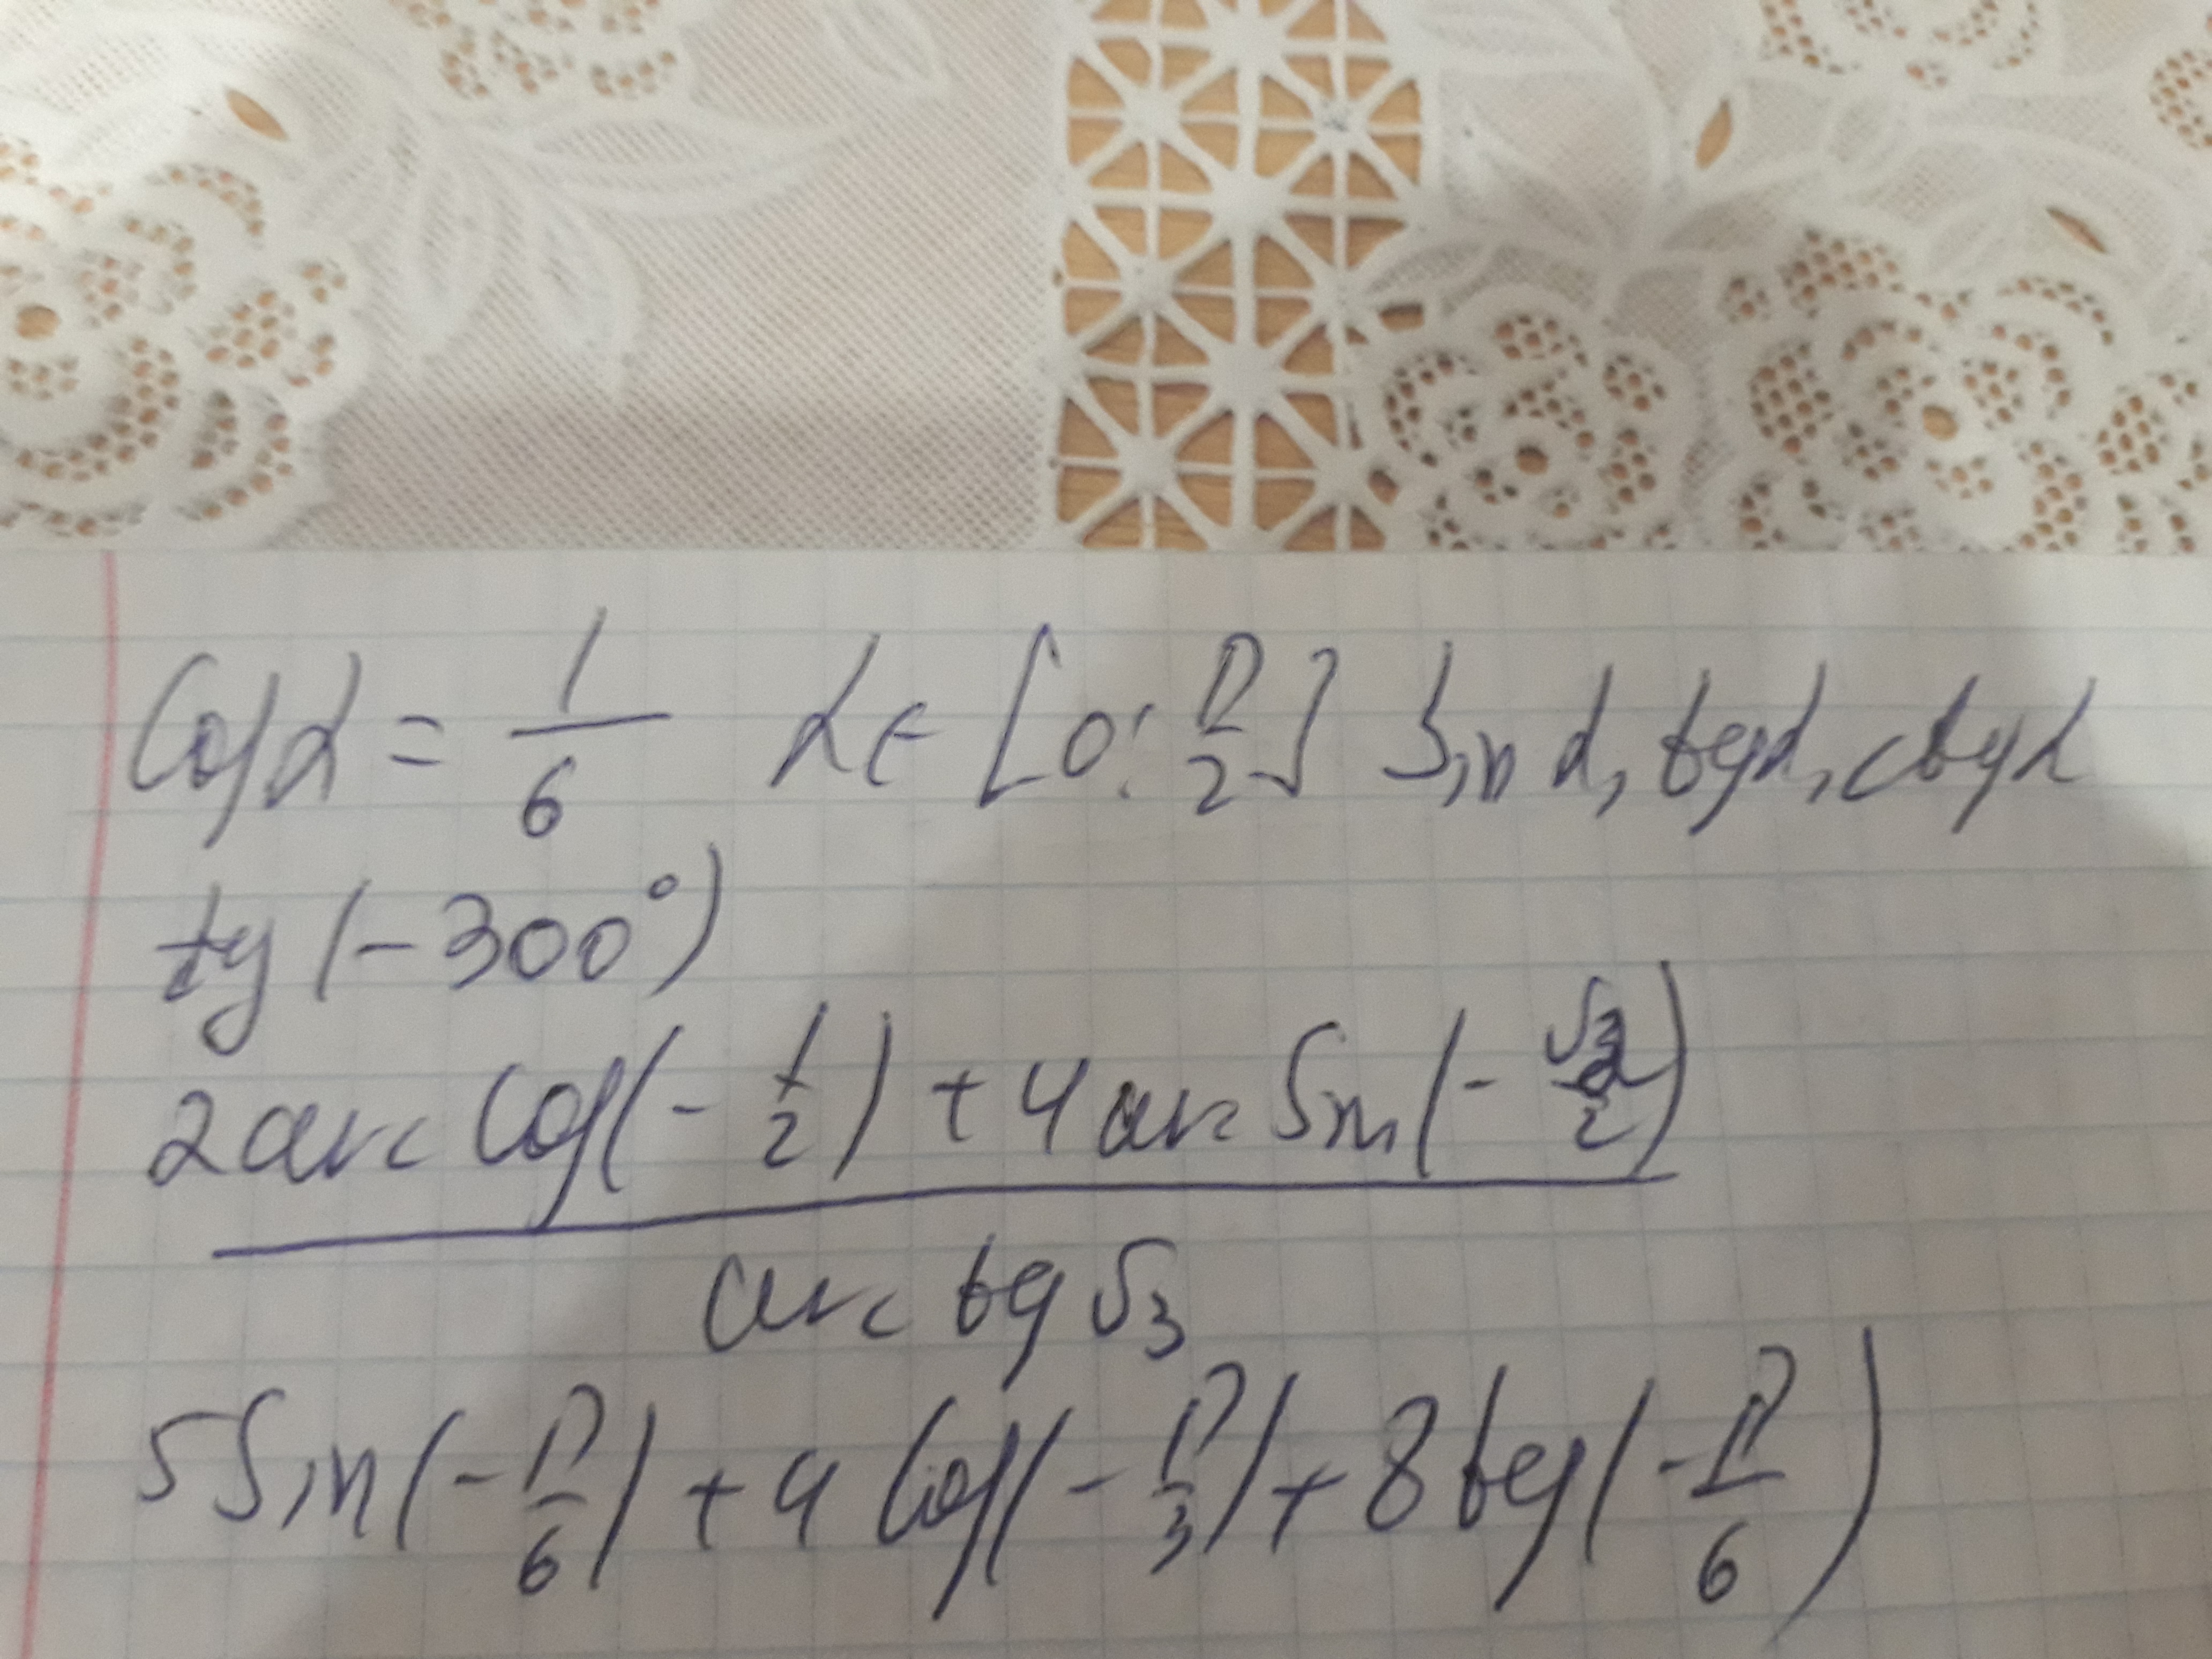 Cos α = 1/6 α ∈ [0; π/2] Sin α, tg α, ctg α
tg (-300°)
2 arc Cos(- 1/2) + 4 arc Sin (- √3/2)
arc tg √3
5 Sin(- π/6) + 4 Cos(- π/3) + 8 tg (- π/6)